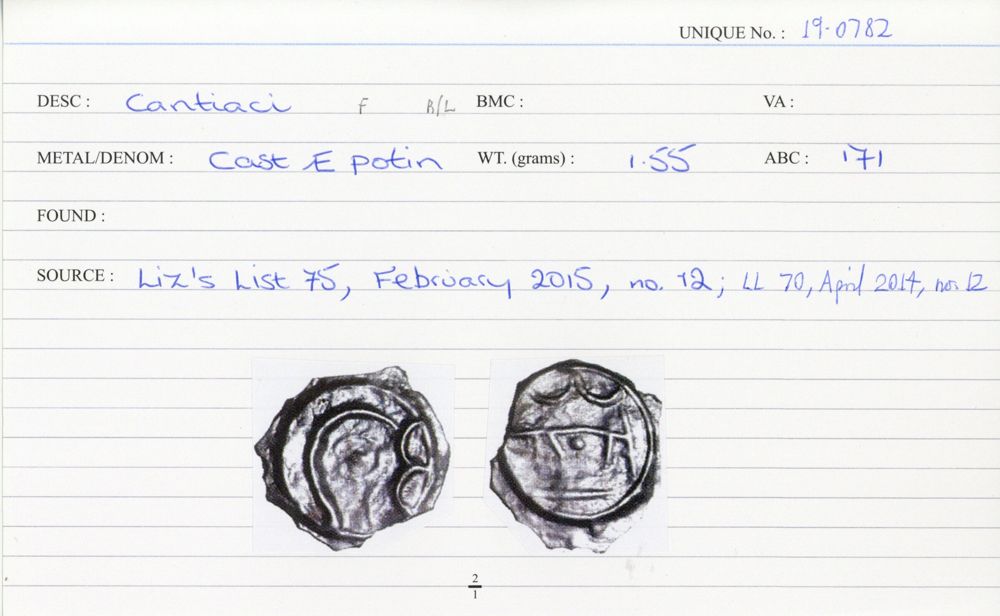 UNIQUE No. : 19-0782
DESC : Cantiaci F B/L BMC : VA :
METAL/DENOM : Cast Æ potin WT. (grams) : 1.55 ABC : 171
FOUND :
SOURCE : Liz's List 75, February 2015, no. 12; LL 70, April 2014, no. 12
2
1